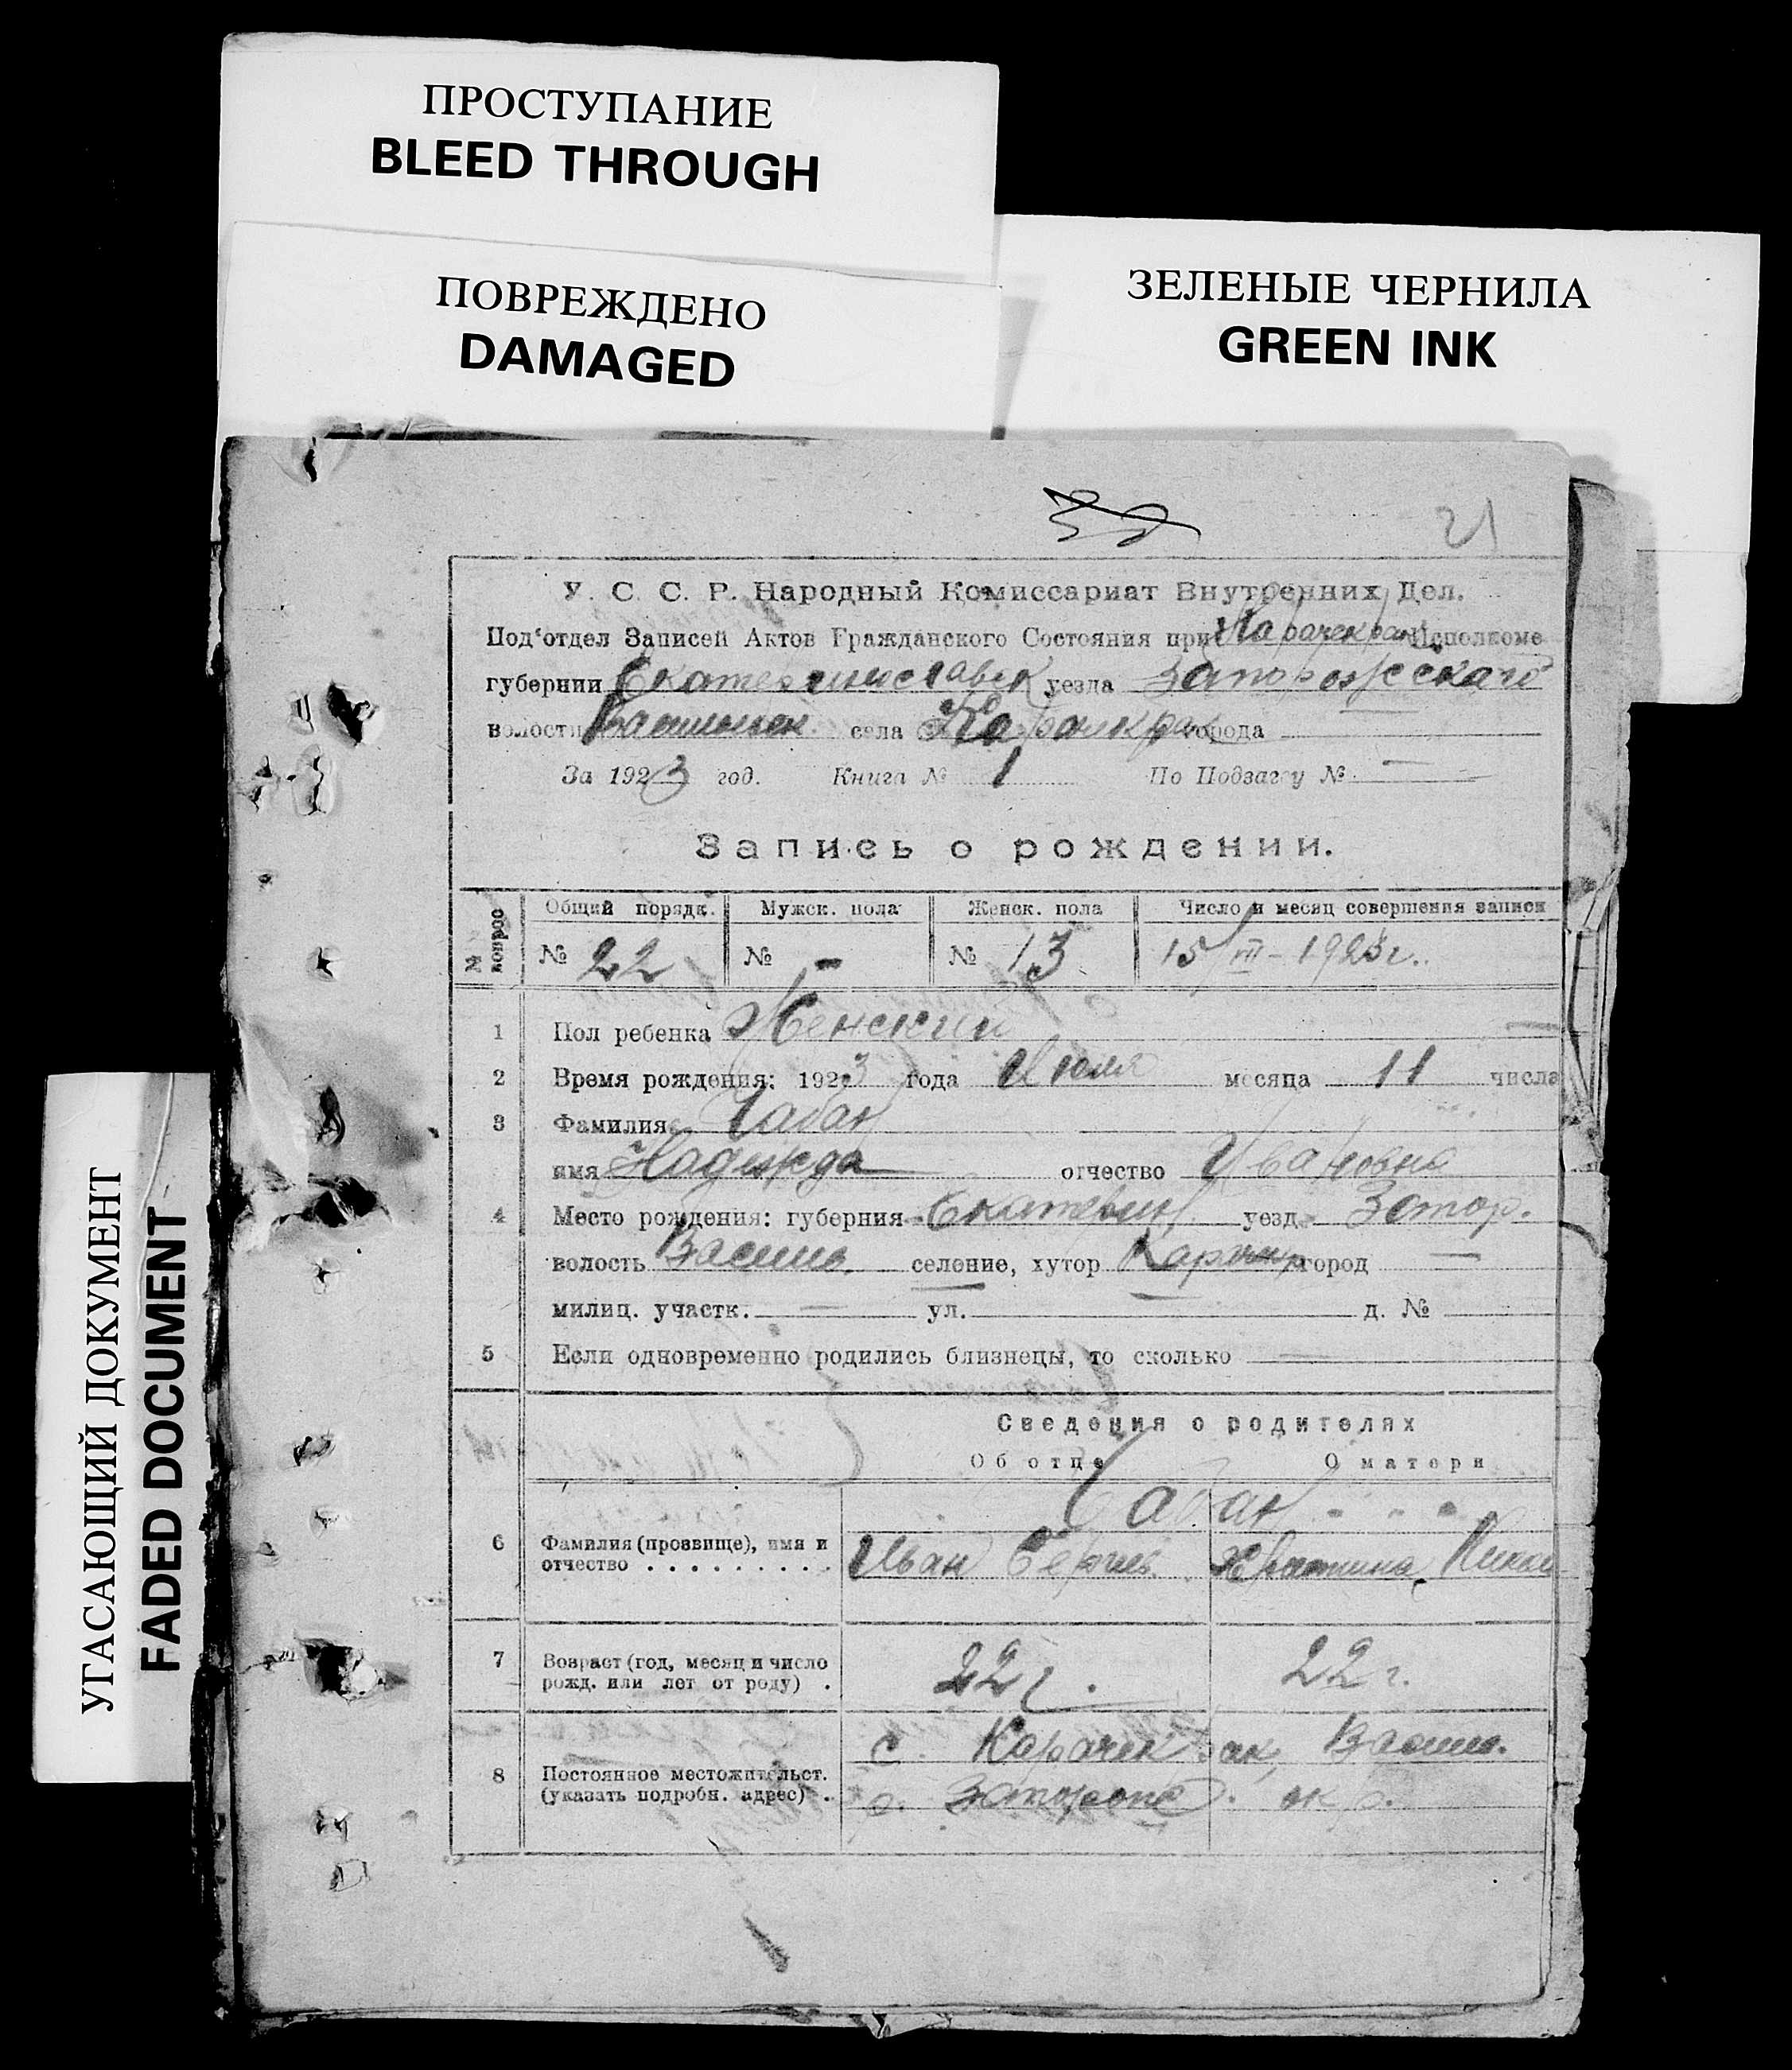 ПРОСТУПАНИЕ
BLEED THROUGH
ПОВРЕЖДЕНО
DAMAGED
ЗЕЛЕНЫЕ ЧЕРНИЛА
GREEN INK
УГАСАЮЩИЙ ДОКУМЕНТ
FADED DOCUMENT
21
У. С. С. Р. Народный Комиссариат Внутренних Дел.
Под'отдел Записей Актов Гражданского Состояния при Исполкоме
губернии Екатеринославск уезда Запорожсскаго
волости села города
За 1923 год. Книга № 1 По Подзагсу № —
Запись о рождении.
№ вопрос Общий порядк. Мужск. пола Женск. пола Число и месяц совершения записи
№ 22 № - № 13 15/VII - 1923 г.
1 Пол ребенка Женский
2 Время рождения: 1923 года Июля месяца 11 числа
3 Фамилия Чабан
имя Надежда отчество Ивановна
4 Место рождения: губерния Екатерин уезд Запор.
волость Васил. селение, хутор город —
милиц. участк. — ул. д. №
5 Если одновременно родились близнецы, то сколько —
Сведения о родителях
Об отце О матери
6 Фамилия (прозвище), имя и Чабан " " "
отчество . . . . . . . . . Иван Сергеев.
7 Возраст (год, месяц и число
рожд. или лет от роду) . 22 г. 22 г.
с. Карачекрак,
8 Постоянное местожительст.
(указать подробн. адрес) . окр.